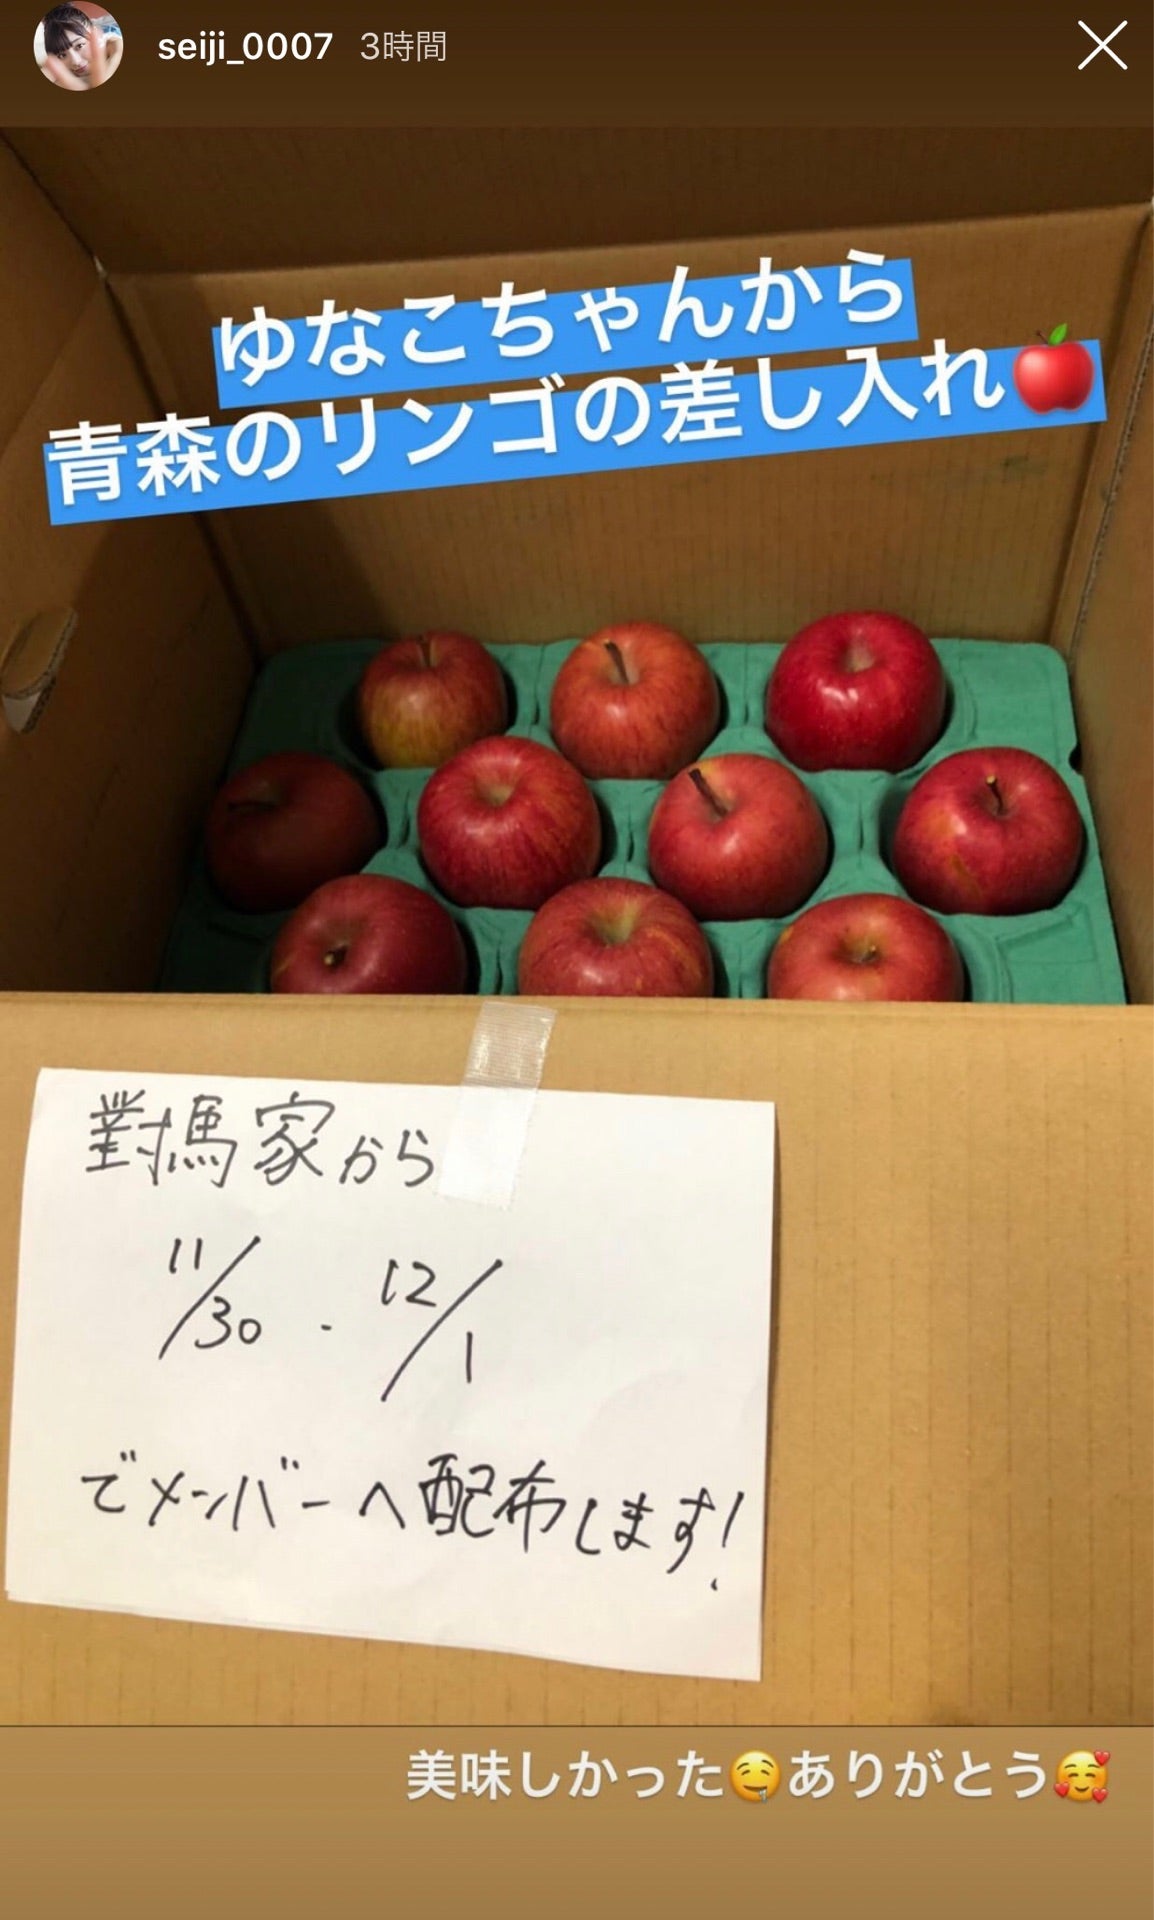 seiji_0007 3時間
ゆなこちゃんから
青森のリンゴの差し入れ🍎
對馬家から
11/30 . 12/1
でメンバーへ配布します!
美味しかった🤤ありがとう🥰